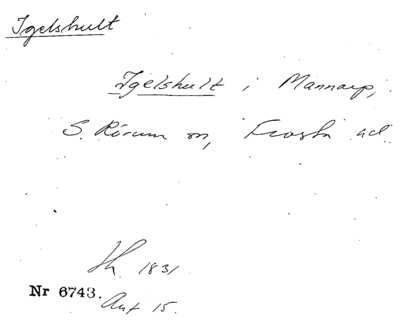 Igelshult
Igelshult i Månnarp,
S. Rörum sn, Frosta hd
1831
Nr 6743.
Akt 15.